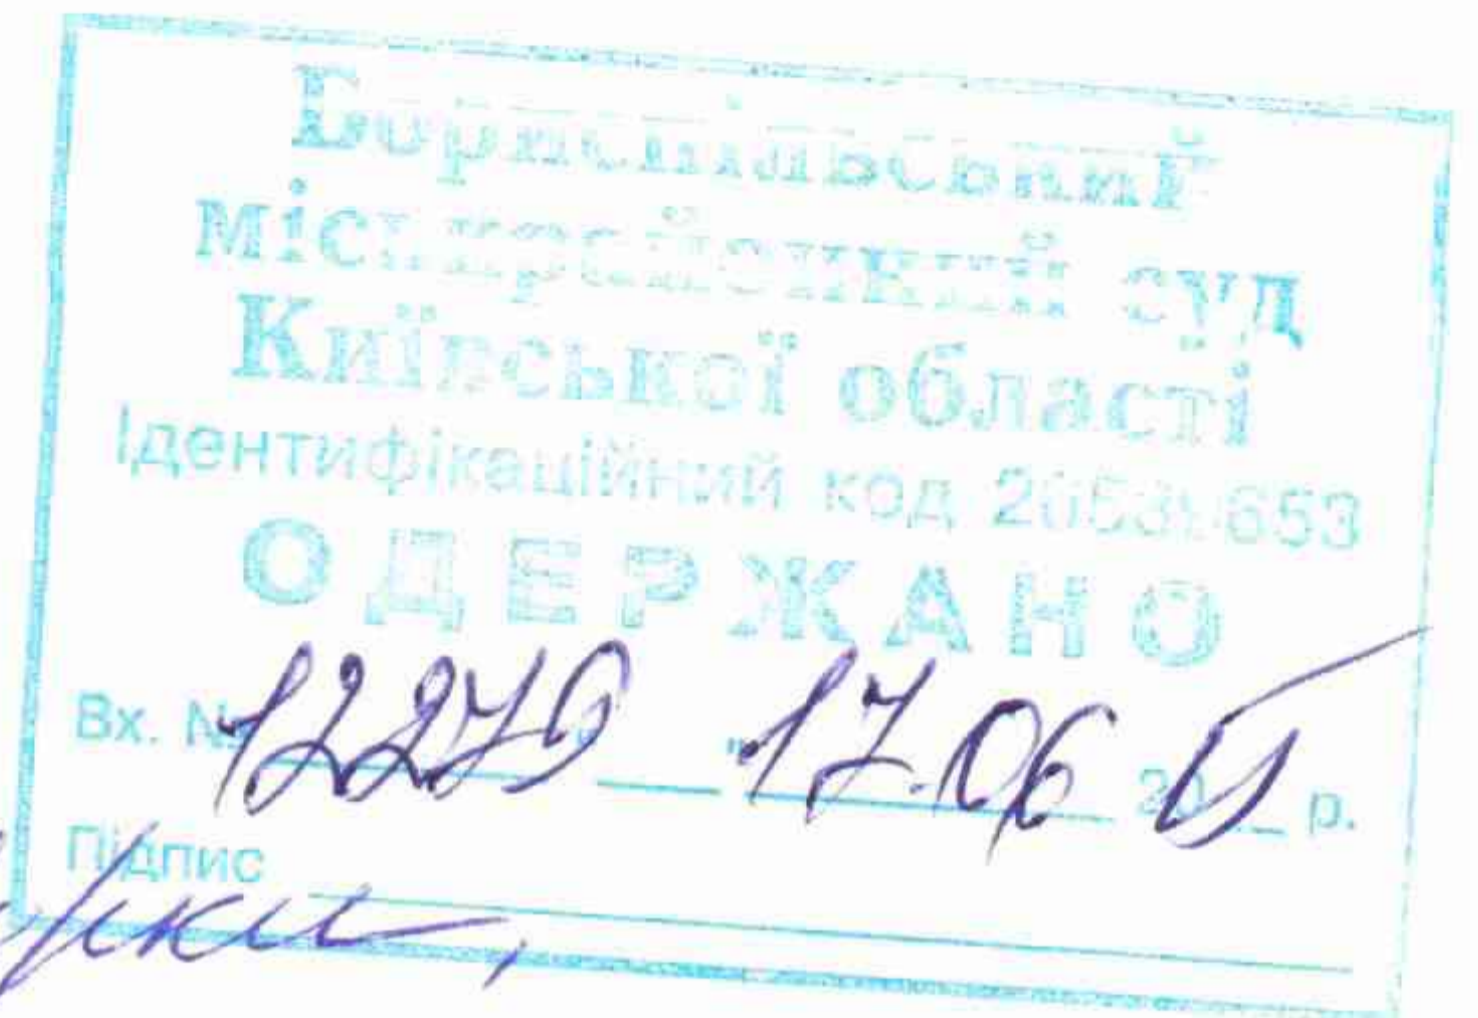 Бориспільський
міськрайонний суд
Київської області
Ідентифікаційний код
ОДЕРЖАНО
Вх. № 12279 " 17.06 20 р.
Підпис